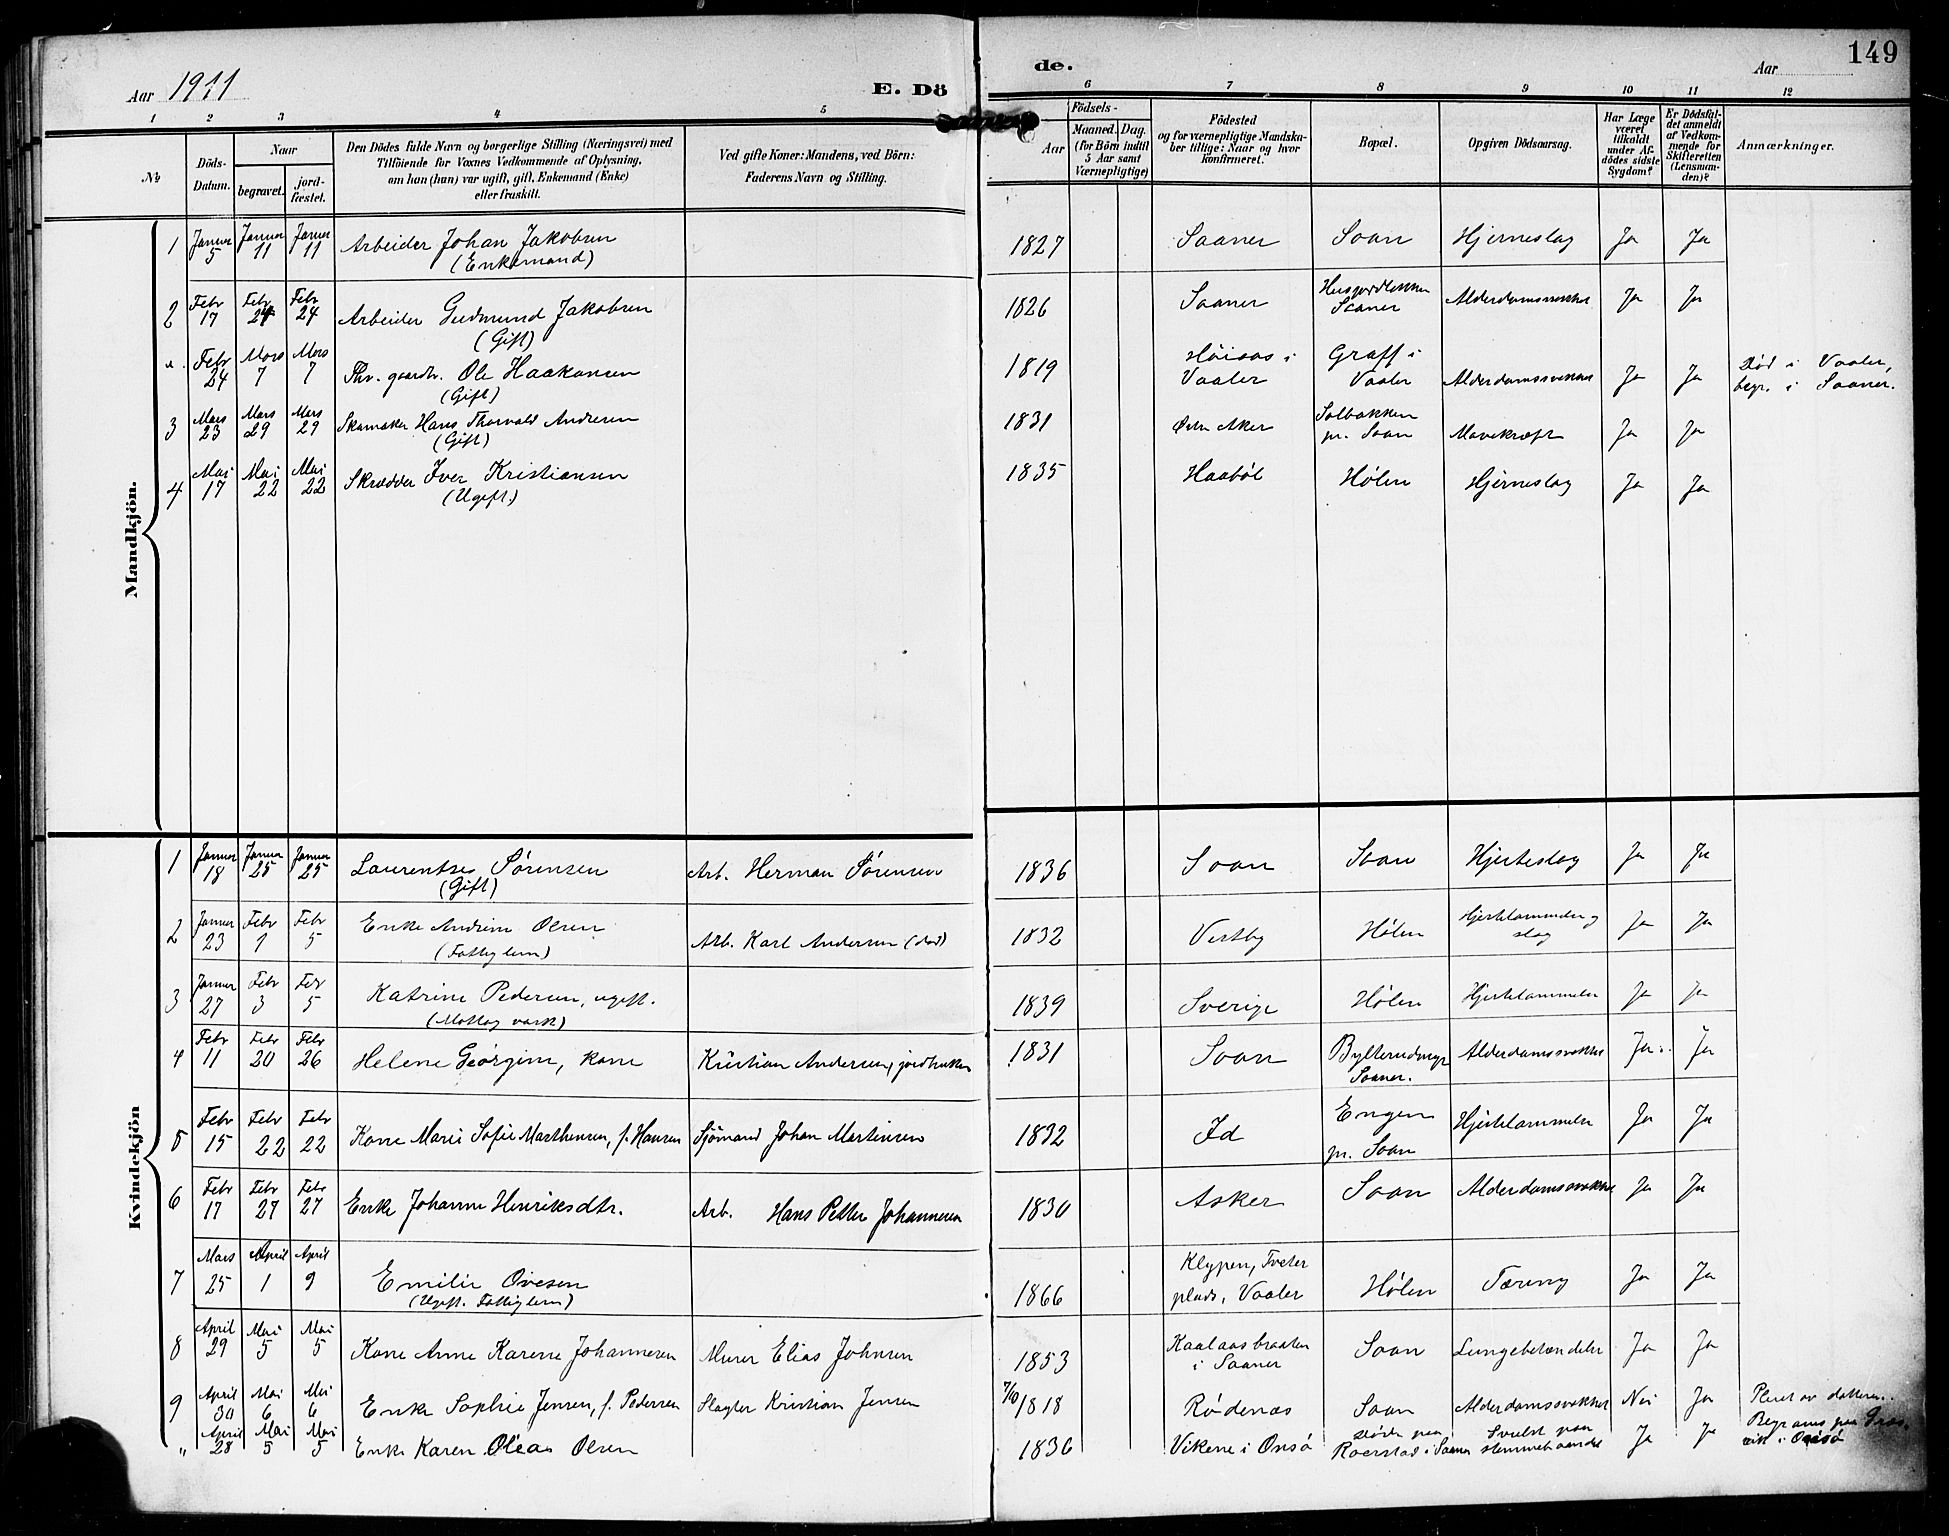 149
Aar 1911
E. Dö
de.
Aar
1 2 3 4 5 6 7 8 9 10 11 12
No
Döds-Datum.
Naar
begravet.
jordfæstet.
Den Dödes fulde Navn og borgerlige Stilling (Næringsvei) med
Tilföiende for Voxnes Vedkommende af Oplysning,
om han (hun) var ugift, gift, Enkemand (Enke)
eller fraskilt.
Ved gifte Koner: Mandens, ved Börn:
Faderens Navn og Stilling.
Födsels-
Aar
Maaned. Dag.
(for Börn indtil
5 Aar samt
Værnepligtige)
Födested
og for værnepligtige Mandskaber tillige: Naar og hvor
konfirmeret.
Bopæl.
Opgiven Dödsaarsag.
Har Læge
været
tilkaldt
under Afdödes sidste
Sygdom?
Er Dödsfaldet anmeldt
af Vedkommende for
Skifteretten
(Lensmanden)?
Anmærkninger.
Mandkjön.
1 Januar 5 Januar 11 Januar 11 Arbeider Johan Jakobsen 1827 Saaner Soon Hjerneslag Ja Ja
(Enkemand)
2 Febr 17 Febr 24 Febr 24 Arbeider Gudmund Jakobsen 1826 Saaner Saaner Alderdomssvækkelse Ja Ja
(Gift)
Febr 24 Mars 7 Mars 7 Fhv. gaardbr. Ole Haakonsen 1819 Høiaas i Vaaler Graff i Vaaler Alderdomssvækkelse Ja Ja Død i Vaaler,
(Gift) begr. i Saaner.
3 Mars 23 Mars 29 Mars 29 Skomaker Hans Thorvald Andresen 1831 Østre Aker Solbakken pr. Soon Mavekræft Ja Ja
(Gift)
4 Mai 17 Mai 22 Mai 22 Skrædder Iver Kristiansen 1835 Haabøl Hølen Hjerneslag Ja Ja
(Ugift.)
Kvindekjön
1 Januar 18 Januar 25 Januar 25 Laurentse Sørensen Arb. Herman Sørensen 1836 Soon Soon Hjerteslag Ja Ja
(Gift)
2 Januar 23 Febr 1 Febr 5 Enke Andrine Olsen Arb. Karl Andersen (død) 1832 Vestby Hølen slag Ja Ja
(Fattiglem)
3 Januar 27 Febr 3 Febr 5 Katrine Pedersen, ugift. 1839 Sverige Hølen Hjertelammelse Ja Ja
4 Febr 11 Febr 20 Febr 26 Helene Georgine, kone Kristian Andersen, jordbruker 1831 Soon Saaner. Alderdomssvækkelse Ja Ja
5 Febr 15 Febr 22 Febr 22 Kone Marie Sofie Marthinsen, f. Hansen Sjømand Johan Martinsen 1832 Id Engen pr. Soon Hjertelammelse Ja Ja
6 Febr 17 Febr 27 Febr 27 Enke Johanne Henriksdtr. Arb. Hans Petter Johannesen 1830 Asker Soon Alderdomssvækkelse Ja Ja
7 Mars 25 April 1 April 9 Emilie Ovesen 1866 Klypen, Tveter plads, Vaaler Hølen Tæring Ja Ja
(Ugift. Fattiglem)
8 April 29 Mai 5 Mai 5 Kone Anne Karene Johannesen Murer Elias Johnsen 1853 Kaalaasbraaten i Saaner Soon Lungebetændelse Ja Ja
9 April 30 Mai 6 Mai 6 Enke Sophie Jensen, f. Pedersen Slagter Kristian Jensen 7/10 1818 Rødenæs Soon Alderdomssvækkelse Nei Ja Pleiet av datteren.
" April 28 Mai 5 Mai 5 Enke Karen Oleas Olsen 1836 Vikene i Onsø Døde paa Roerstad i Saaner Svulst paa stemmebaandet Ja Ja Begraves paa
i Onsø